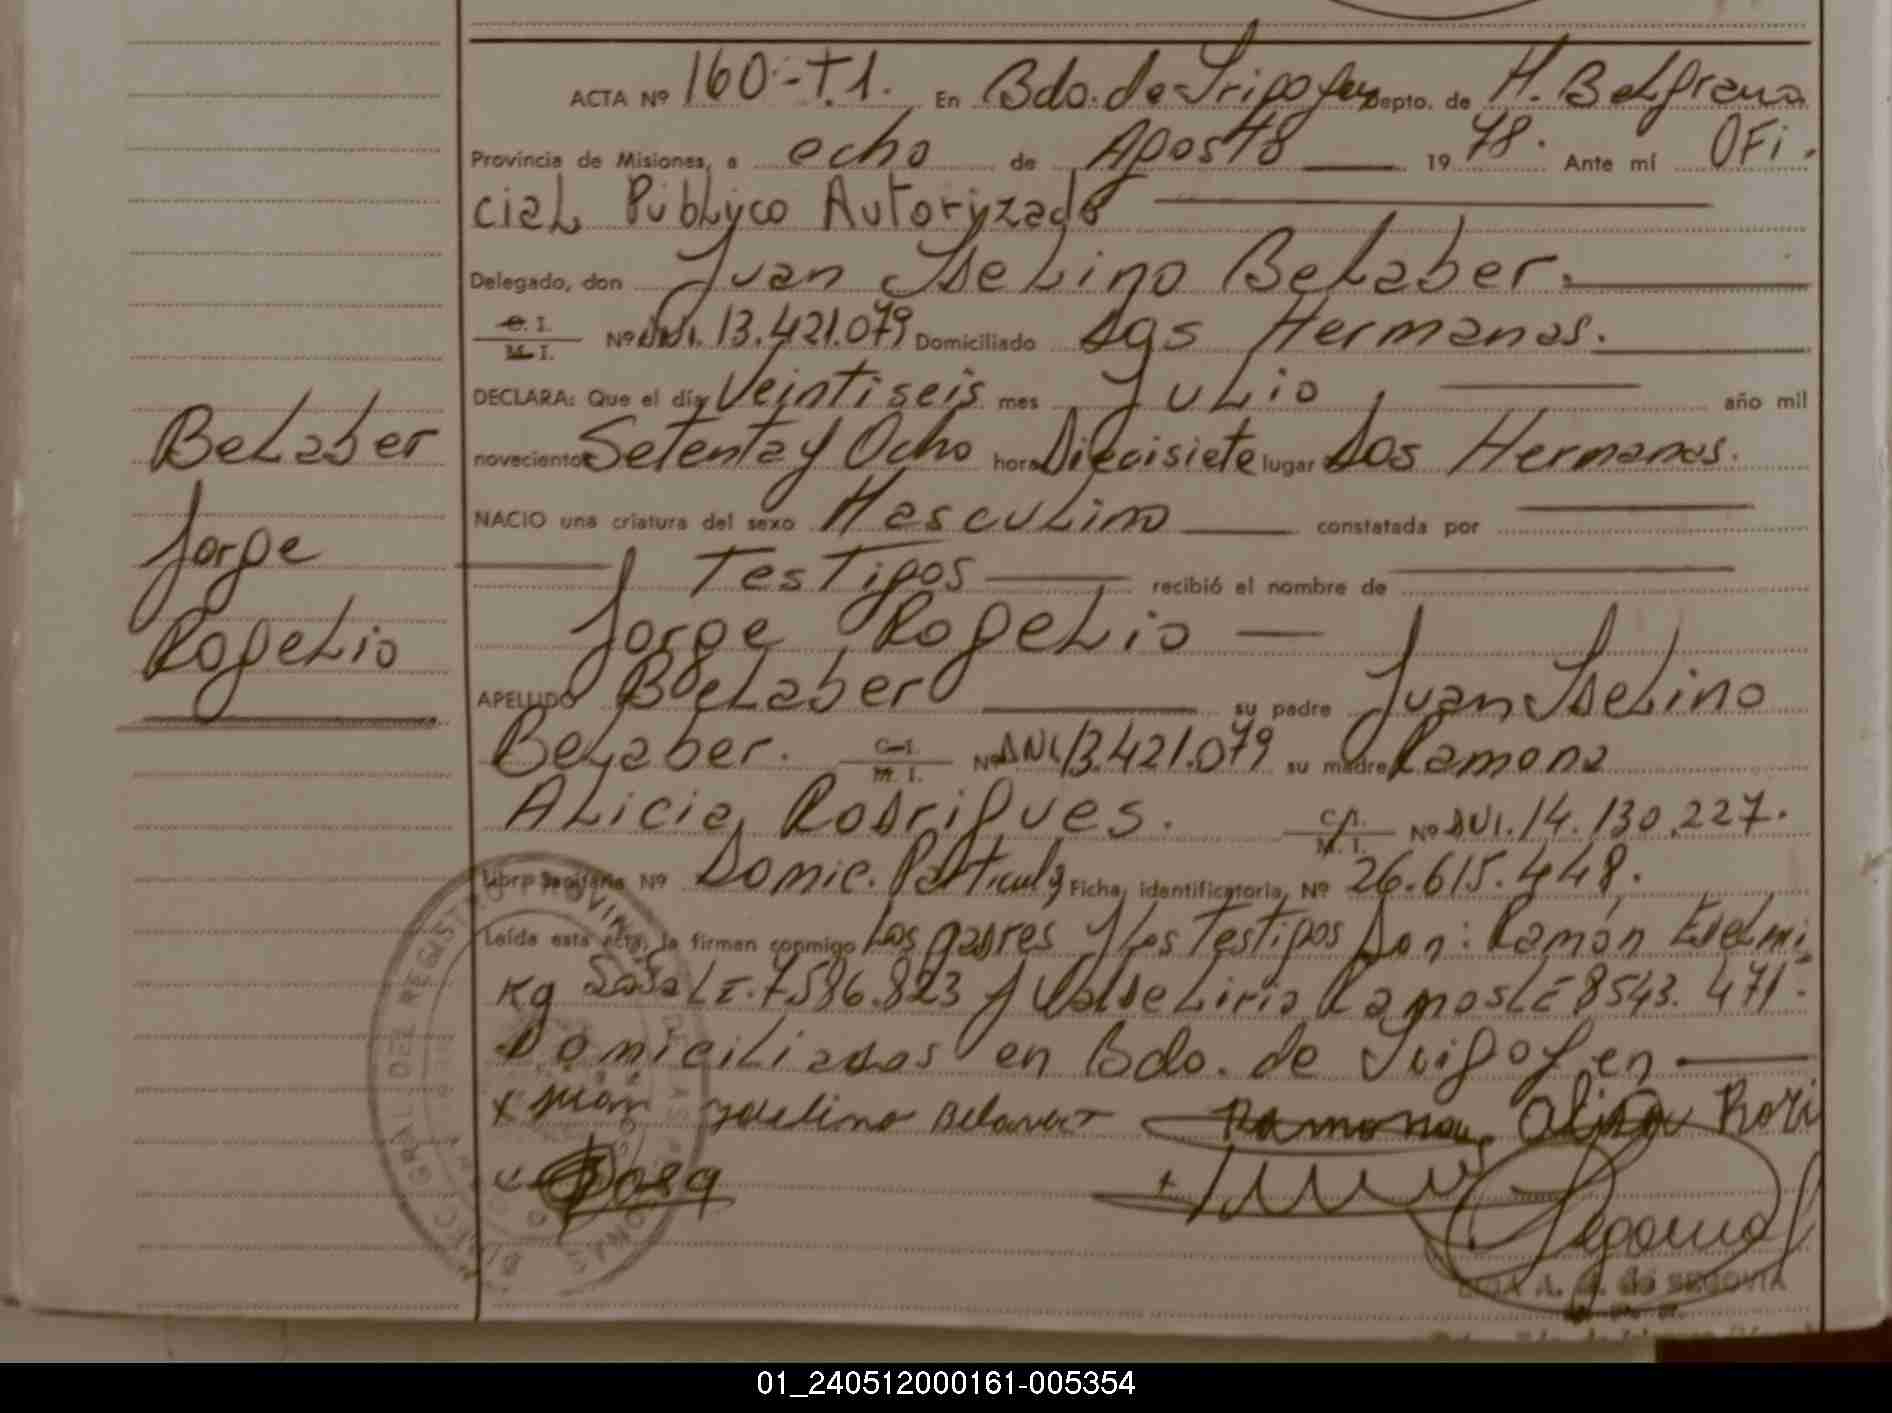 ACTA Nº 160-T.1. En Bdo. de Irigoyen Depto. de M. Belgrano
Provincia de Misiones, a ocho de Agosto 1978. Ante mí OFi.
ciaL PúbLyco Autoryzado
Delegado, don Juan IdeLino BeLaber.
C. I. / M. I. Nº DNI. 13.421.079 Domiciliado Dos Hermanas.
DECLARA: Que el día Veintiseis mes JuLio año mil
novecientos Setenta y Ocho hora Diecisiete lugar Dos Hermanas.
NACIO una criatura del sexo MascuLino constatada por
Testigos recibió el nombre de
Jorge RogeLio
APELLIDO BeLaber su padre Juan IdeLino
BeLaber. C. I. / M. I. Nº DNI. 13.421.079 su madre Ramona
ALicia Rodrigues. C. I. / M. I. Nº DNI. 14.130.227.
Libreta Sanitaria Nº Domic. Particular Ficha identificatoria, Nº 26.615.448.
Leída esta acta, la firman conmigo Los padres y Los Testigos Don: Ramón
LE.7586.823 y Ramos LE 8543.471.
DomiciLiados en Bdo. de Irigoyen
x Juan Ydelino Belaver Ramona Alisia Rori
BeLaber
Jorge
RogeLio
A. de SEGOVIA
01_240512000161-005354